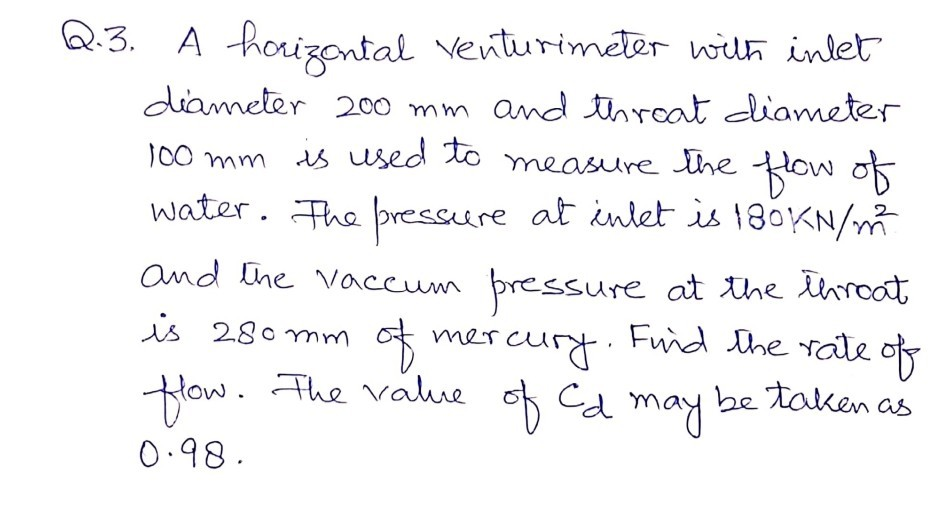 Q.3. A horizontal venturimeter with inlet
diameter 200 mm and throat diameter
100 mm is used to measure the flow of
water. The pressure at inlet is 180KN/m²
and the vaccum pressure at the throat
is 280mm of mercury. Find the rate of
flow. The value of Cd may be taken as
0.98.